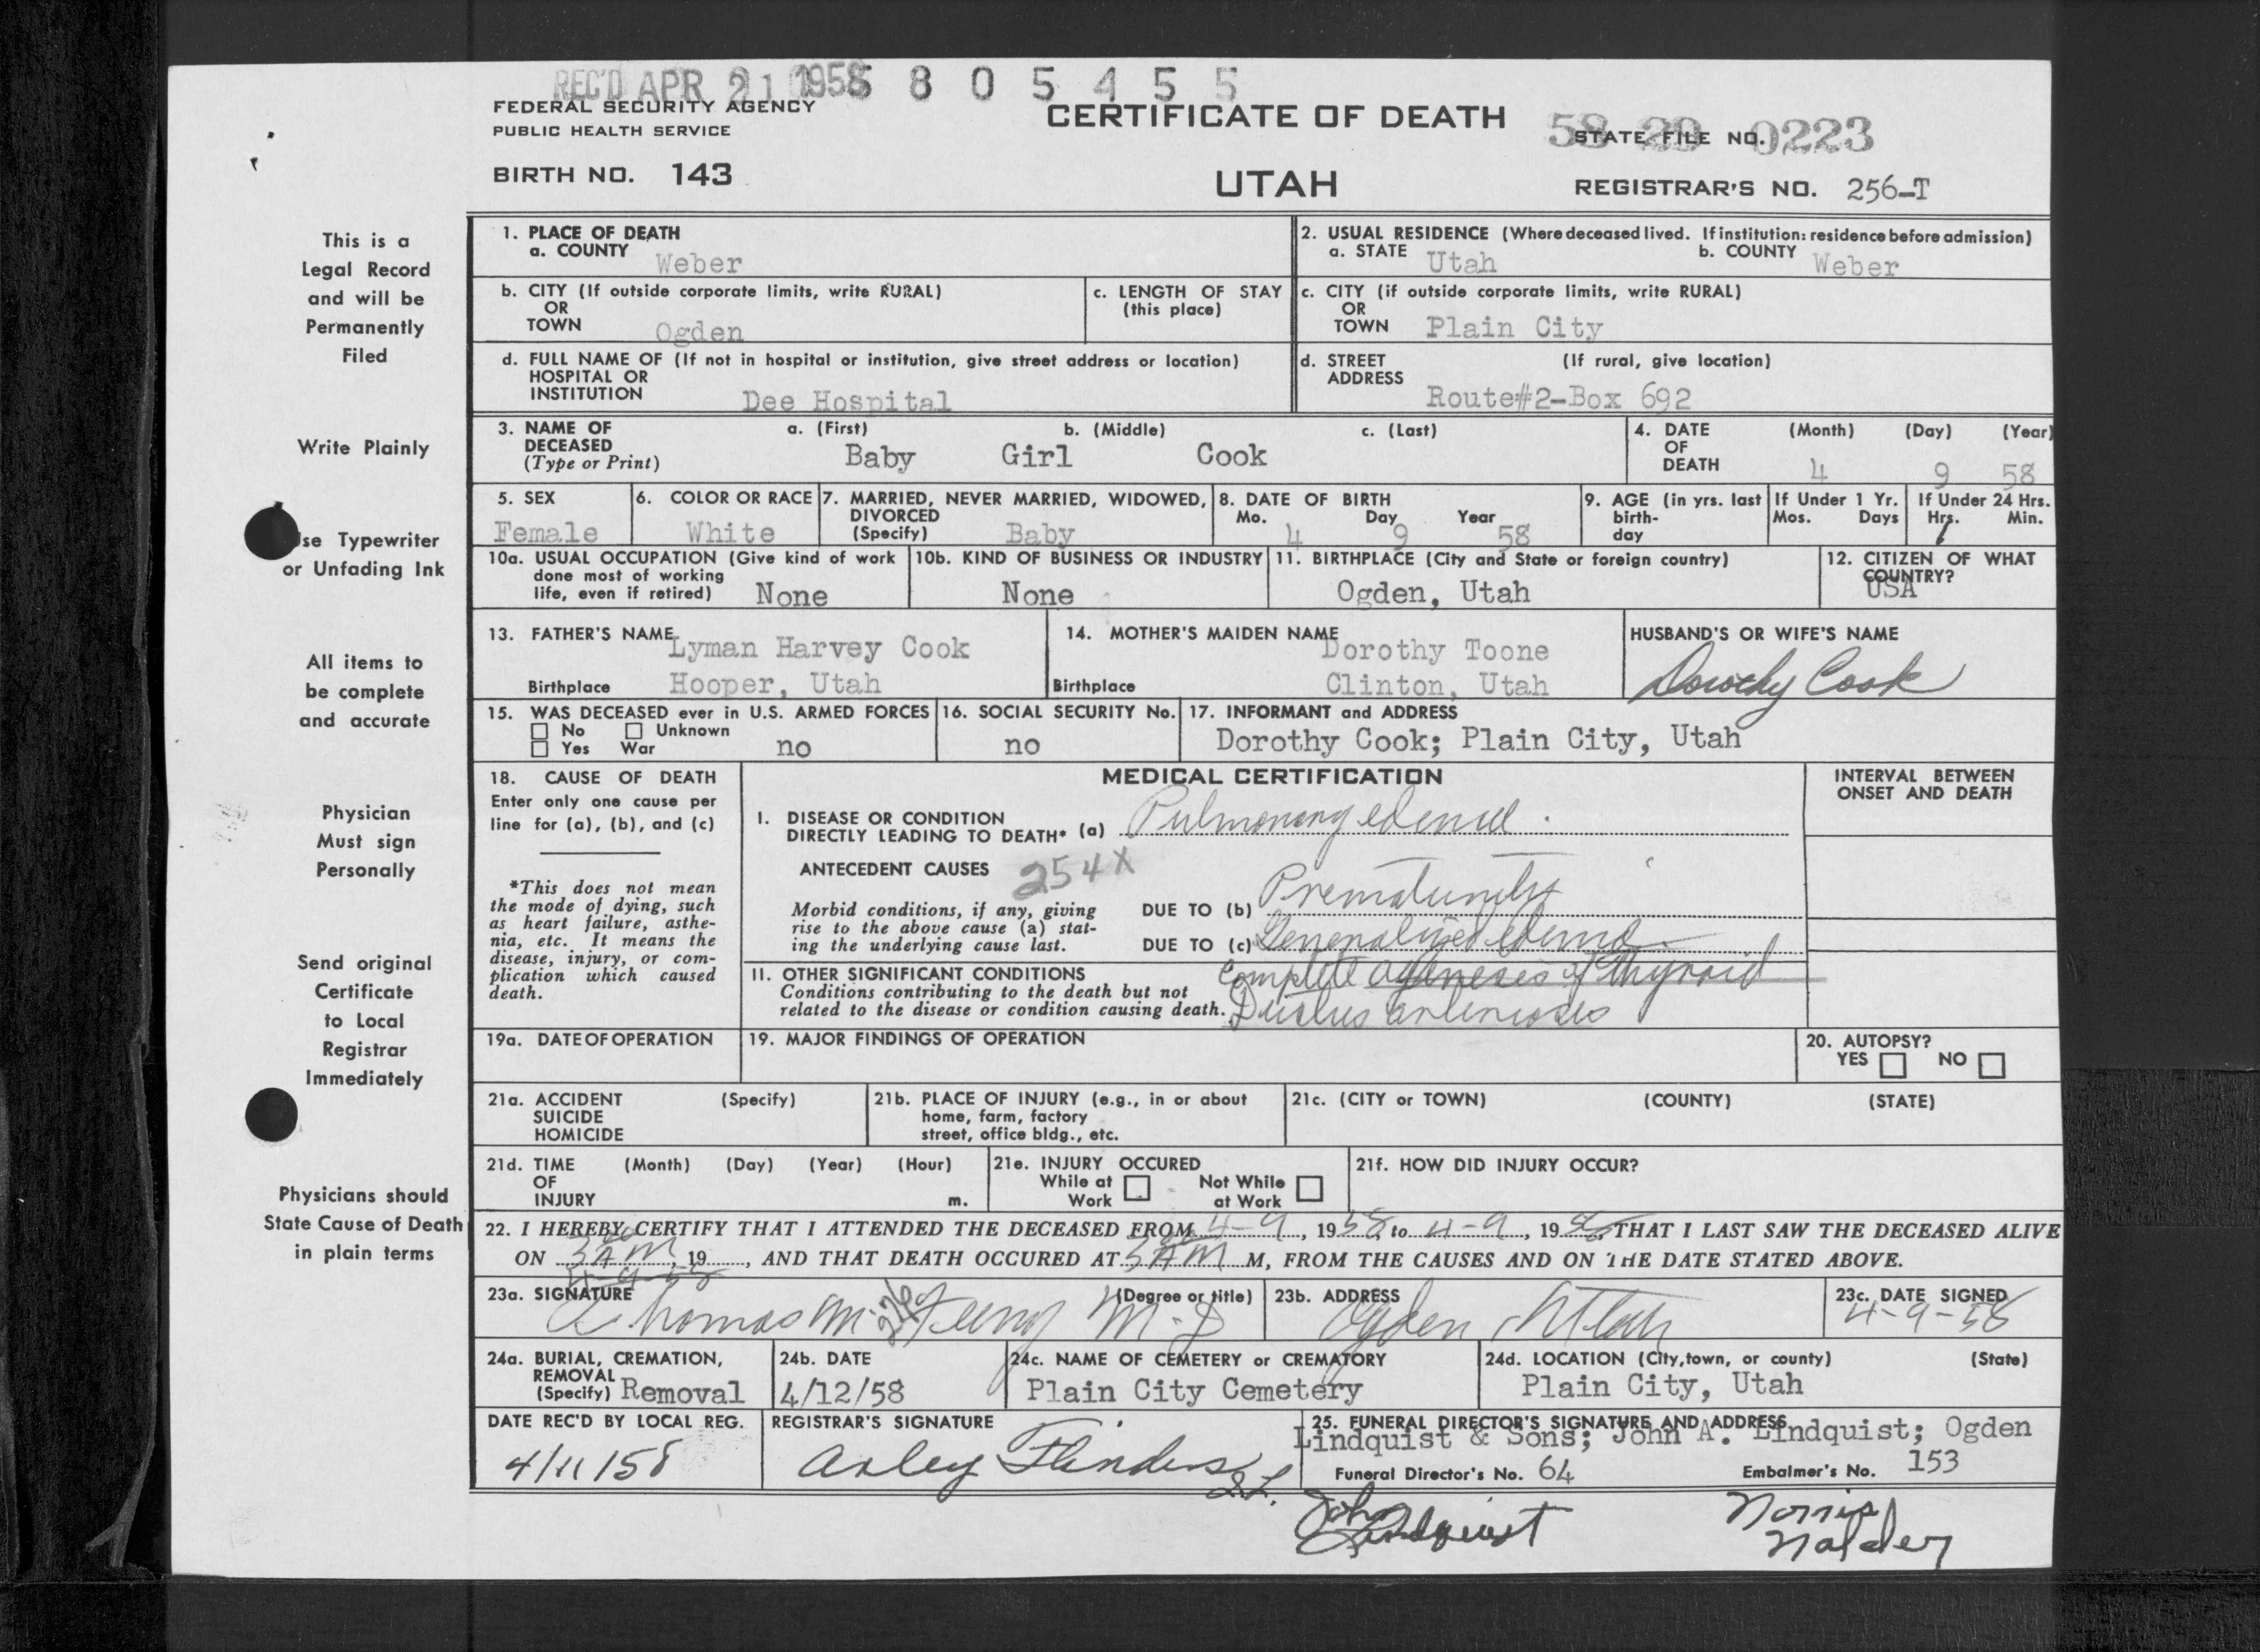 REC'D APR 21 1958 5 8 0 5 4 5 5
FEDERAL SECURITY AGENCY
PUBLIC HEALTH SERVICE
CERTIFICATE OF DEATH
58 29 0223
STATE FILE NO.
BIRTH NO. 143
UTAH
REGISTRAR'S NO. 256-T
This is a
Legal Record
and will be
Permanently
Filed
Write Plainly
Use Typewriter
or Unfading Ink
All items to
be complete
and accurate
Physician
Must sign
Personally
Send original
Certificate
to Local
Registrar
Immediately
Physicians should
State Cause of Death
in plain terms
1. PLACE OF DEATH
a. COUNTY Weber
2. USUAL RESIDENCE (Where deceased lived. If institution: residence before admission)
a. STATE Utah b. COUNTY Weber
b. CITY (If outside corporate limits, write RURAL)
OR
TOWN Ogden
c. LENGTH OF STAY
(this place)
c. CITY (if outside corporate limits, write RURAL)
OR
TOWN Plain City
d. FULL NAME OF (If not in hospital or institution, give street address or location)
HOSPITAL OR
INSTITUTION Dee Hospital
d. STREET (If rural, give location)
ADDRESS
Route#2-Box 692
3. NAME OF a. (First) b. (Middle) c. (Last)
DECEASED
(Type or Print) Baby Girl Cook
4. DATE (Month) (Day) (Year)
OF
DEATH 4 9 58
5. SEX
Female
6. COLOR OR RACE
White
7. MARRIED, NEVER MARRIED, WIDOWED,
DIVORCED
(Specify) Baby
8. DATE OF BIRTH
Mo. Day Year
4 9 58
9. AGE (in yrs. last
birth-
day
If Under 1 Yr.
Mos. Days
If Under 24 Hrs.
Hrs. Min.
10a. USUAL OCCUPATION (Give kind of work
done most of working
life, even if retired) None
10b. KIND OF BUSINESS OR INDUSTRY
None
11. BIRTHPLACE (City and State or foreign country)
Ogden, Utah
12. CITIZEN OF WHAT
COUNTRY?
USA
13. FATHER'S NAME Lyman Harvey Cook
Birthplace Hooper, Utah
14. MOTHER'S MAIDEN NAME Dorothy Toone
Birthplace Clinton, Utah
HUSBAND'S OR WIFE'S NAME
Dorothy Cook
15. WAS DECEASED ever in U.S. ARMED FORCES
No Unknown
Yes War no
16. SOCIAL SECURITY No.
no
17. INFORMANT and ADDRESS
Dorothy Cook; Plain City, Utah
18. CAUSE OF DEATH
Enter only one cause per
line for (a), (b), and (c)
*This does not mean
the mode of dying, such
as heart failure, asthe-
nia, etc. It means the
disease, injury, or com-
plication which caused
death.
MEDICAL CERTIFICATION
INTERVAL BETWEEN
ONSET AND DEATH
I. DISEASE OR CONDITION
DIRECTLY LEADING TO DEATH* (a) Pulmonary edema.
ANTECEDENT CAUSES 254X
Morbid conditions, if any, giving
rise to the above cause (a) stat-
ing the underlying cause last.
DUE TO (b) Prematurity
DUE TO (c) Generalized edema
II. OTHER SIGNIFICANT CONDITIONS
Conditions contributing to the death but not
related to the disease or condition causing death.
Complete agenesis of thyroid
Ductus arteriosis
19a. DATE OF OPERATION
19. MAJOR FINDINGS OF OPERATION
20. AUTOPSY?
YES NO
21a. ACCIDENT (Specify)
SUICIDE
HOMICIDE
21b. PLACE OF INJURY (e.g., in or about
home, farm, factory
street, office bldg., etc.
21c. (CITY or TOWN) (COUNTY) (STATE)
21d. TIME (Month) (Day) (Year) (Hour)
OF
INJURY m.
21e. INJURY OCCURED
While at Not While
Work at Work
21f. HOW DID INJURY OCCUR?
22. I HEREBY CERTIFY THAT I ATTENDED THE DECEASED FROM 4-9, 1958, to 4-9, 1958, THAT I LAST SAW THE DECEASED ALIVE
ON 3 AM, 19, AND THAT DEATH OCCURED AT 5 AM M, FROM THE CAUSES AND ON THE DATE STATED ABOVE.
4-9-58
23a. SIGNATURE (Degree or title)
Thomas M. Feeny M.D
23b. ADDRESS
Ogden Utah
23c. DATE SIGNED
4-9-58
24a. BURIAL, CREMATION,
REMOVAL
(Specify) Removal
24b. DATE
4/12/58
24c. NAME OF CEMETERY or CREMATORY
Plain City Cemetery
24d. LOCATION (City, town, or county) (State)
Plain City, Utah
DATE REC'D BY LOCAL REG.
4/11/58
REGISTRAR'S SIGNATURE
Arley Flinders
25. FUNERAL DIRECTOR'S SIGNATURE AND ADDRESS
Lindquist & Sons; John A. Lindquist; Ogden
Funeral Director's No. 64 Embalmer's No. 153
John Lindquist
Norris
Nalder